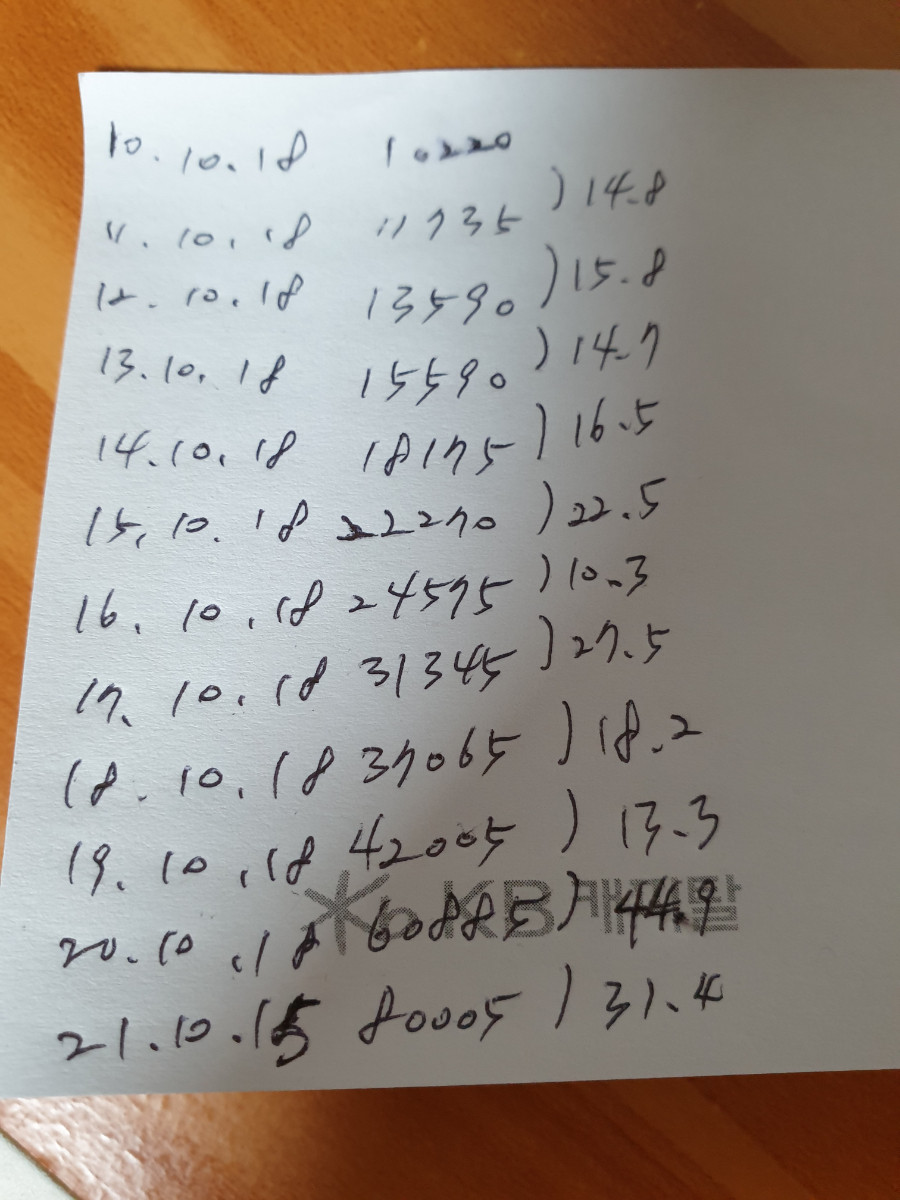 10.10.18 10220
11.10.18 11735 ) 14.8
12.10.18 13590 ) 15.8
13.10.18 15590 ) 14.7
14.10.18 18175 ) 16.5
15.10.18 22270 ) 22.5
16.10.18 24575 ) 10.3
17.10.18 31345 ) 27.5
18.10.18 37065 ) 18.2
19.10.18 42005 ) 13.3
KB
20.10.18 60885 ) 44.9
21.10.15 80005 ) 31.4